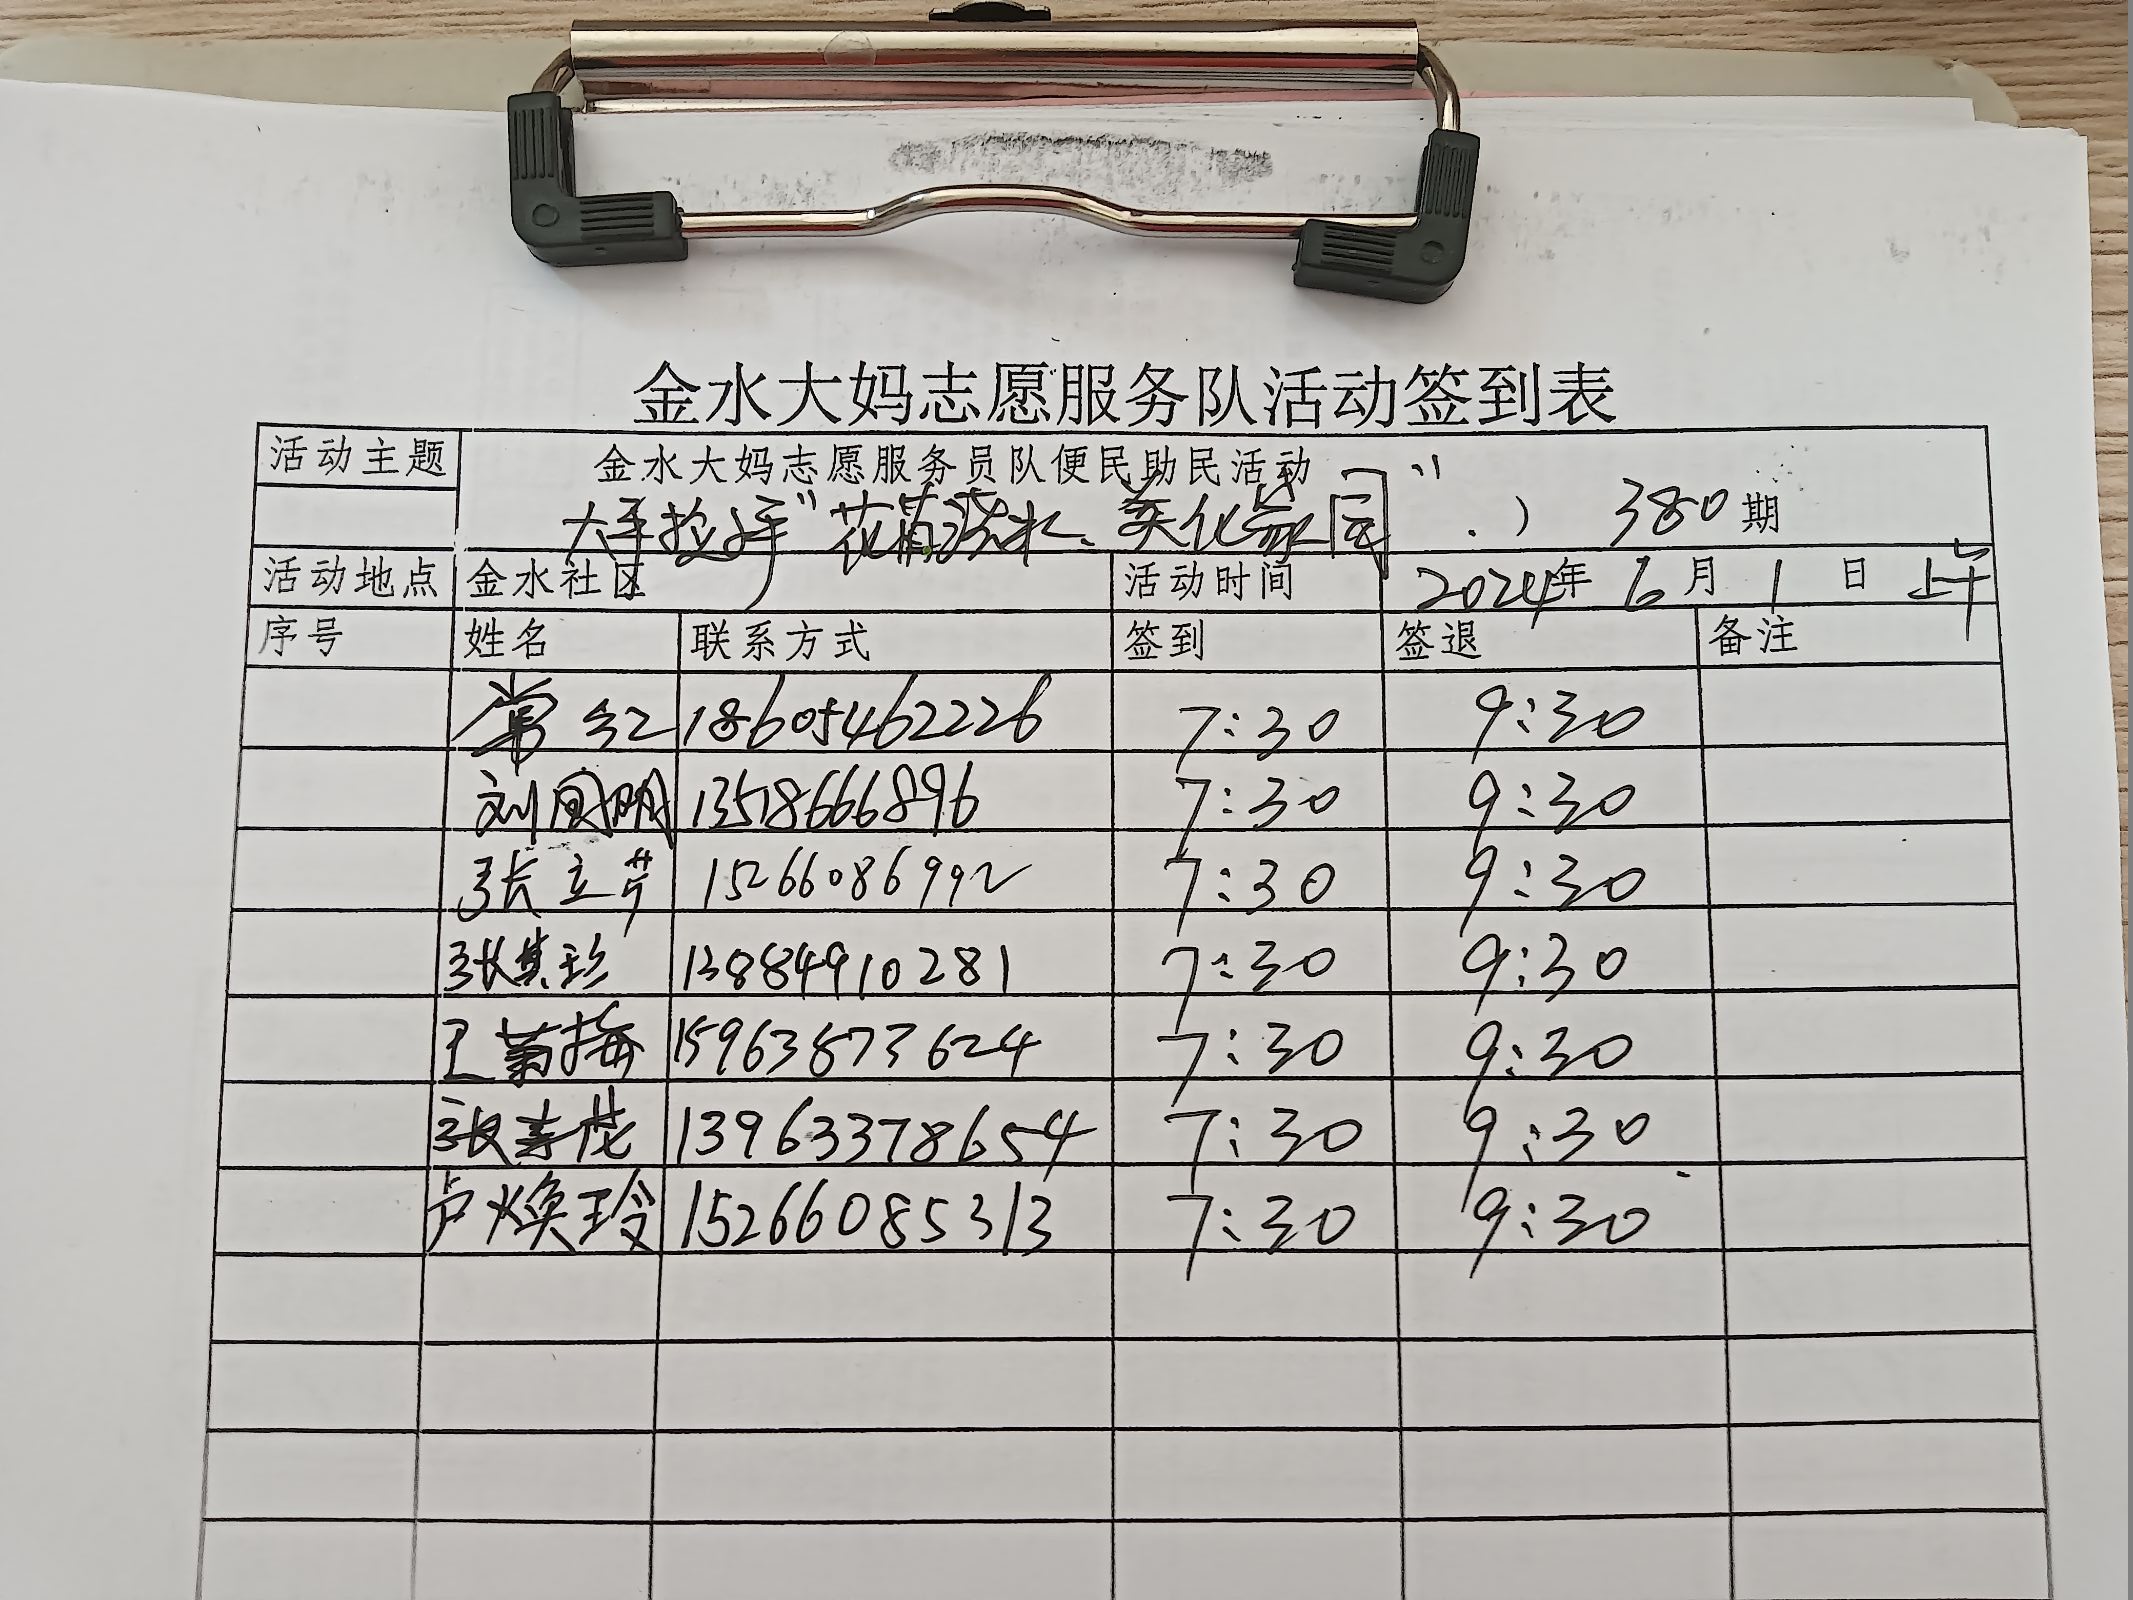 金水大妈志愿服务队活动签到表
活动主题 金水大妈志愿服务员队便民助民活动
大手拉小手"花苗浇水、美化家园" .） 380期
活动地点 金水社区 活动时间 2024年 6月 1日 上午
序号 姓名 联系方式 签到 签退 备注
常红 18605462226 7:30 9:30
刘国明 13518666896 7:30 9:30
张立芹 15266086992 7:30 9:30
张其珍 13884910281 7:30 9:30
王菊梅 15963873624 7:30 9:30
张寿花 13963378654 7:30 9:30
卢焕玲 15266085313 7:30 9:30